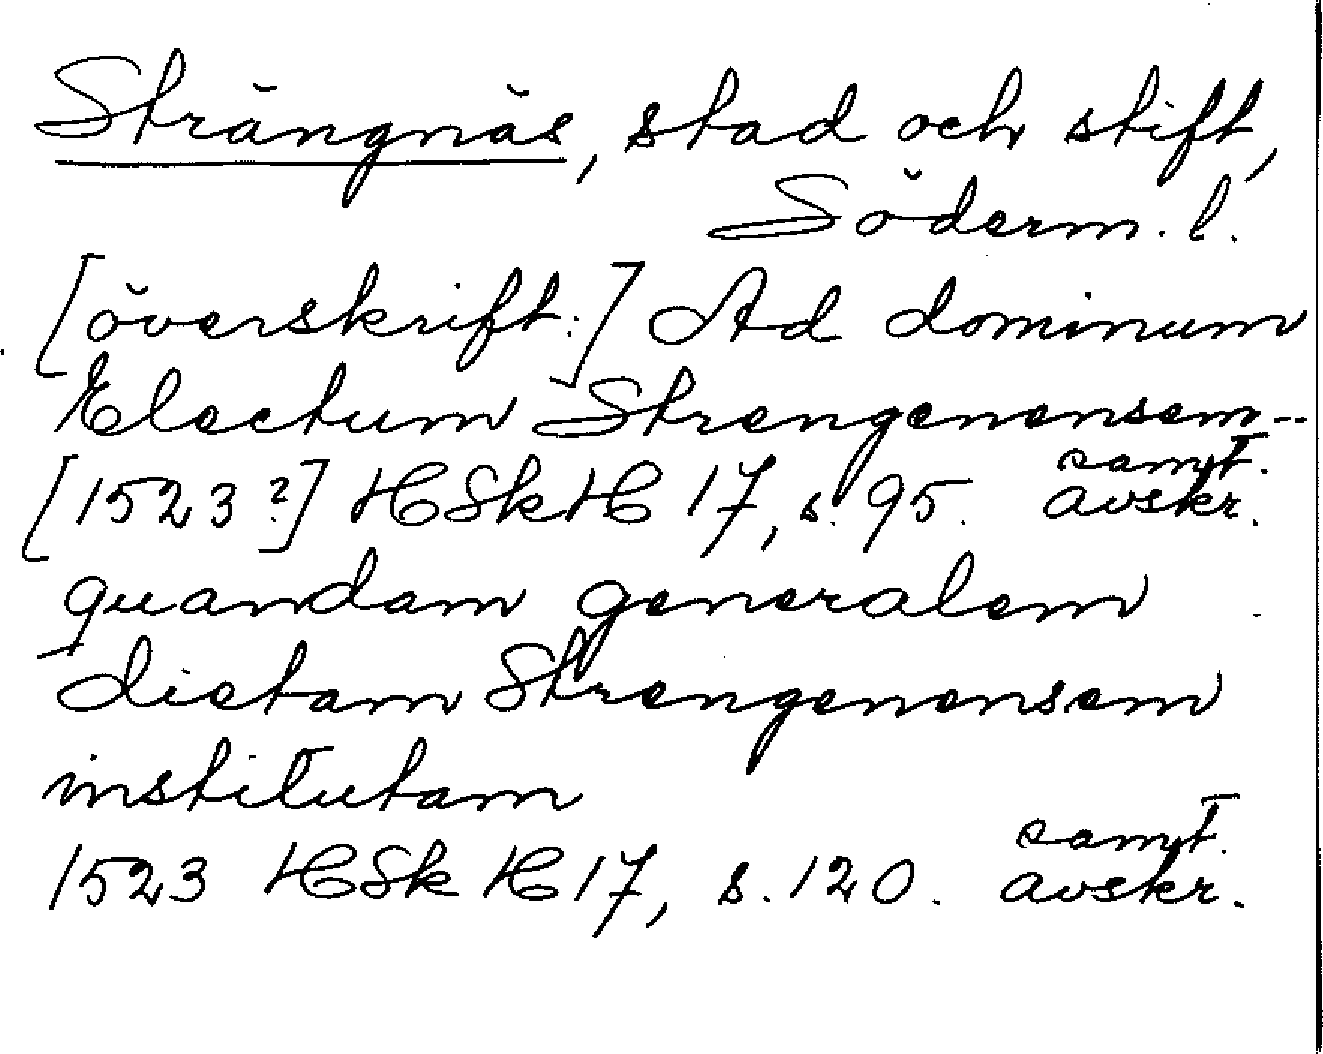 Strängnäs, stad och stift,
Söderm. l.
[överskrift:] Ad dominum
Electum Strengenensem--
[1523?] HSkH 17, s. 95. samt. avskr.
quandam generalem
dietam Strengenensem
institutam
1523 HSkH 17, s. 120. samt. avskr.